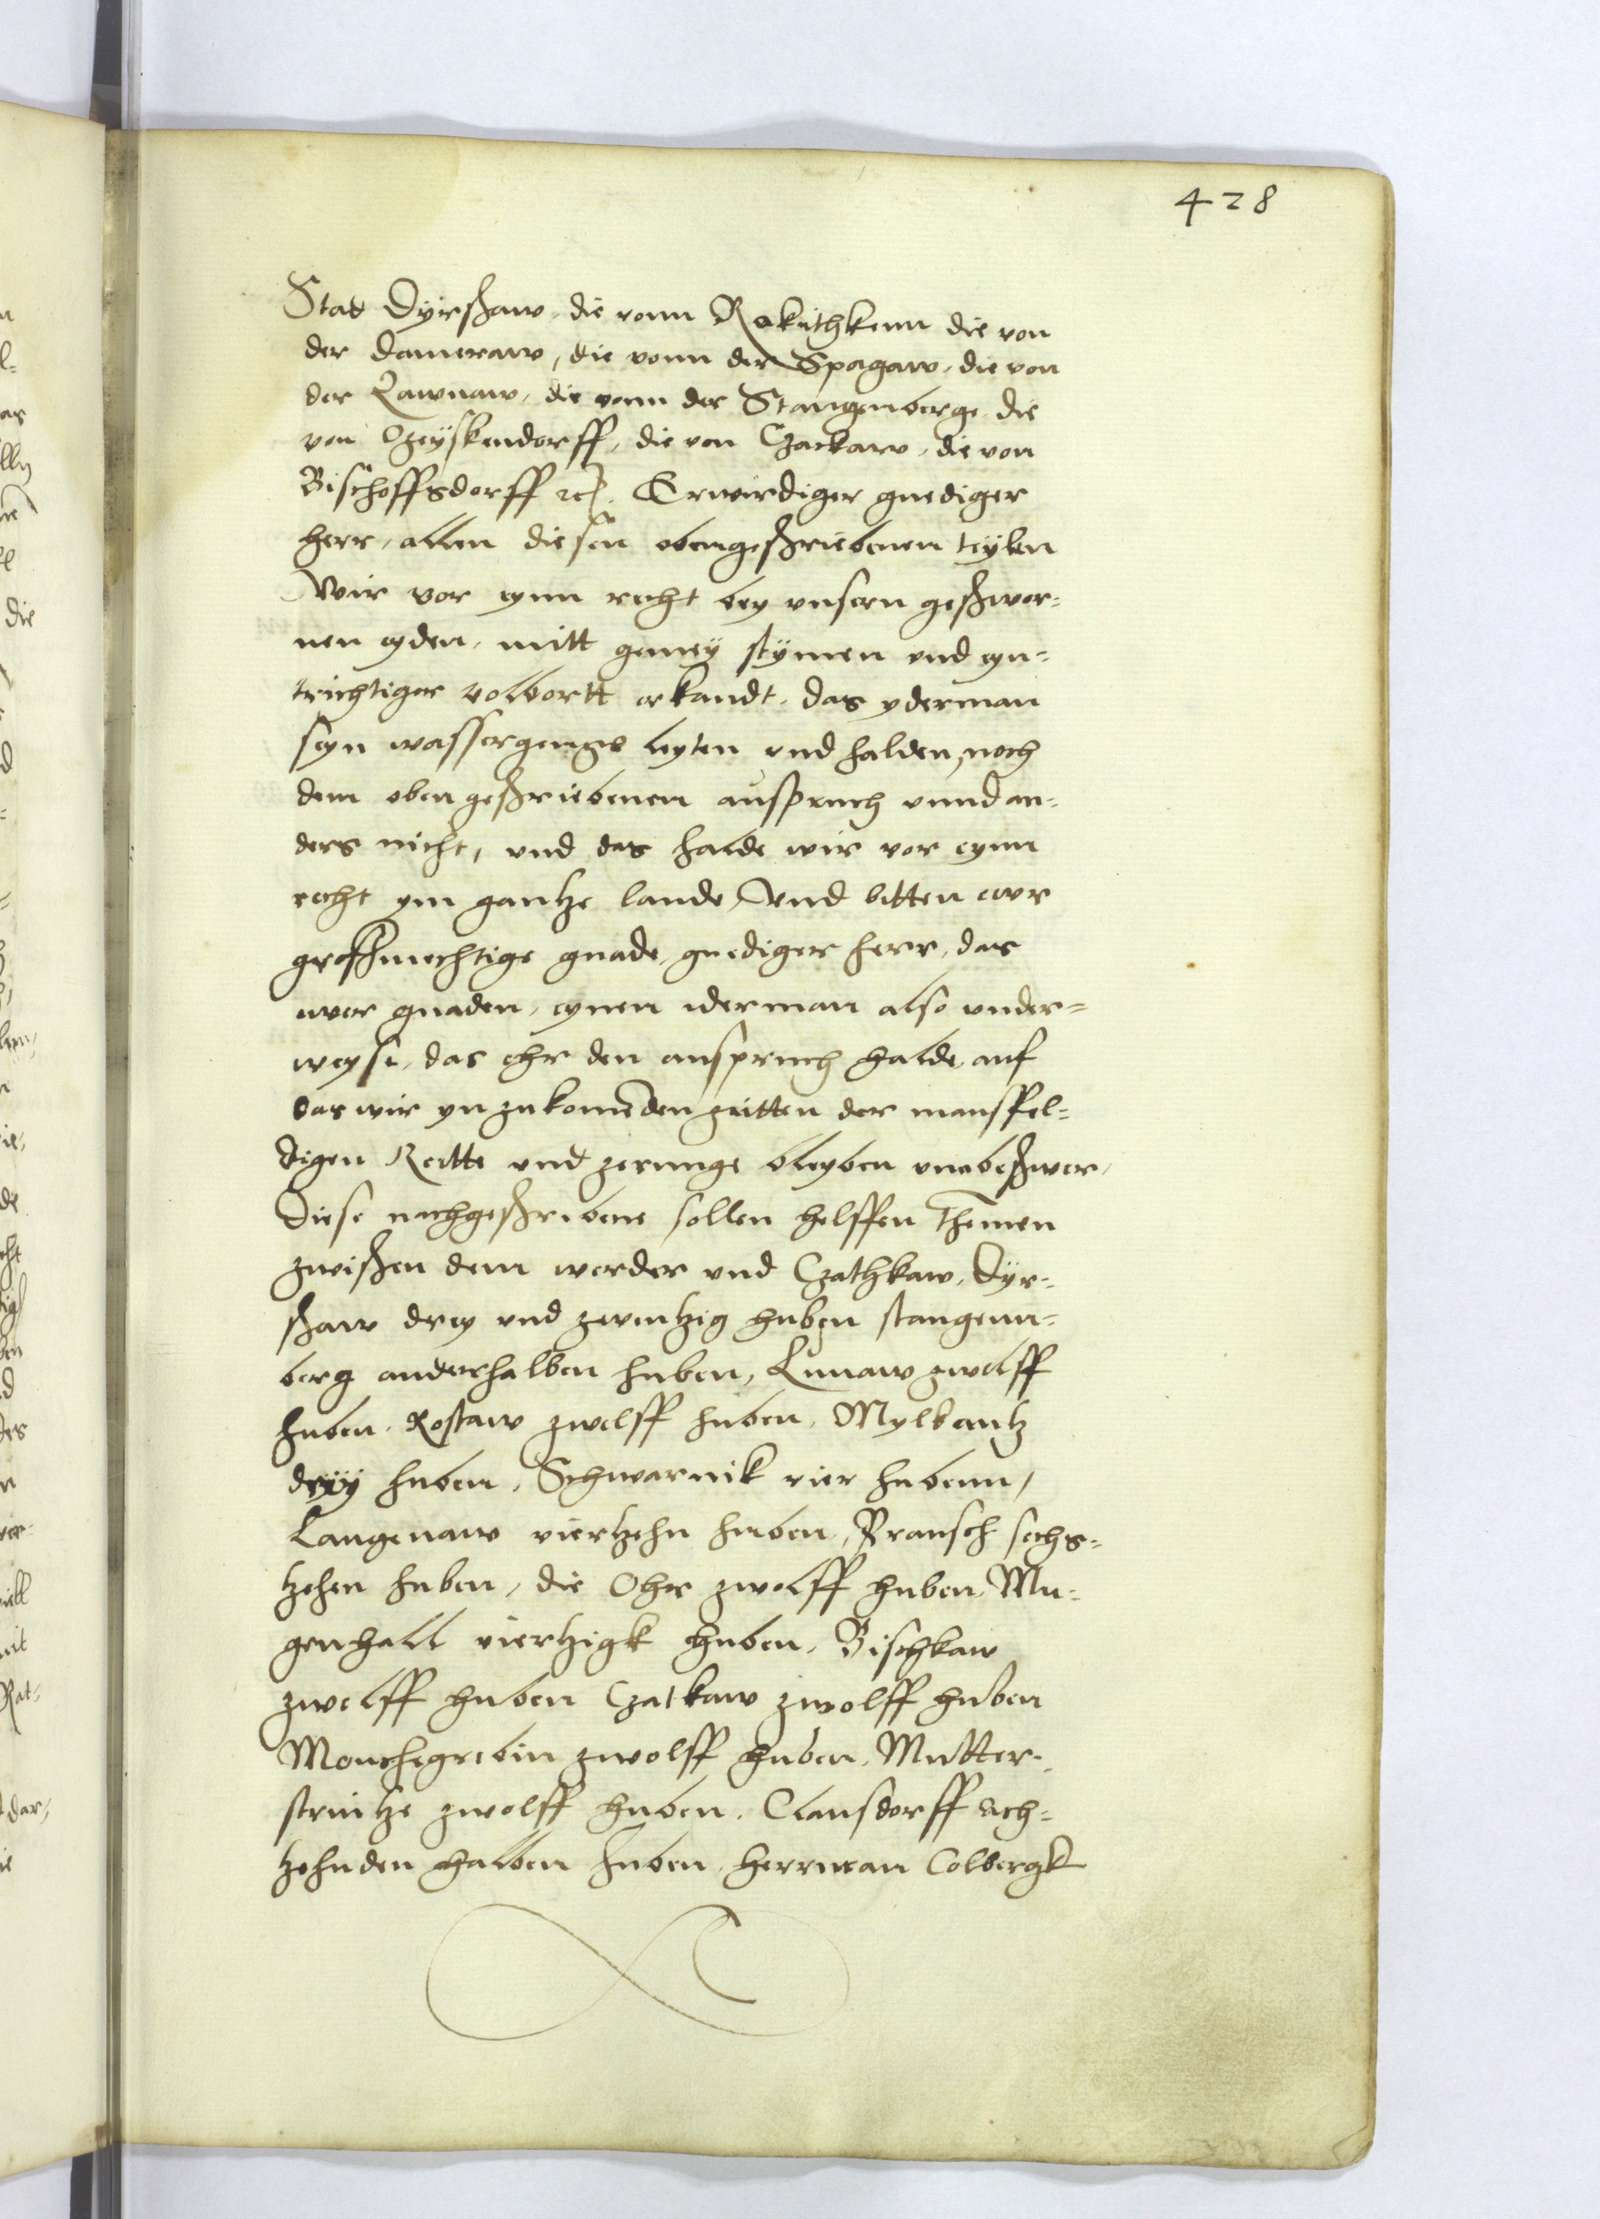 428
Stat Dyrßaw, die vonn Rokithkenn die von
der Dameraw, die vonn der Spagaw, die von
der Lawnaw, die vonn der Stangenberge die
von Czeyskendorff, die von Czarkaw, die von
Bischoffsdorff etc. Erwirdiger gnediger
herr, allen diesen obengeßriebenen teylen
Wir vor eynn recht bey unsern geßwor=
nen eyden, mitt gemey stymen und eyn=
trechtiger volbortt erkandt, das yderman
seyn wassergenge leyten und halden, noch
dem obengeßriebenem außpruch unnd an=
ders nicht, und das halde wir vor eynn
recht ym gantze lande, Und bitten ewr
großmechtige gnade, gnediger herr, das
uwer gnaden, eynen iderman also under=
weyse, das ehr den außpruch halde, auf
das wir yn zukomenden zeitten der manffel=
digen Reitte und zerunge bleyben unebeßwer,
Diese nachgeßribene sollen helffen Themen
zwißen dem werder und Czathkaw, Dyr=
ßaw drey und zwentzig huben stangenn=
berg anderhalben huben, Lunaw zwelff
huben, Rostaw zwelff huben, Mylbantz
drey huben, Schwarnik vier hubenn,
Langenaw viertzehn huben, Bransch sechs=
tzehen huben, die Ohr zwolff huben, Mu=
genhall viertzigk huben, Bischkaw
zwelff huben Czatkaw zwolff huben
Monchegrebin zwolff huben, Mutter=
strintze zwolff huben, Clausdorff ach=
tzehnden halben huben, Herrman Colbergk